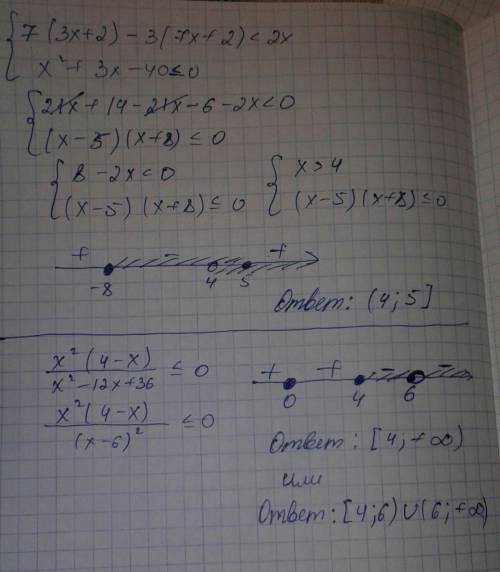 { 7 (3x+2) - 3(7x+2) < 2x
x² + 3x - 40 ≤ 0
{ 21x + 14 - 21x - 6 - 2x < 0
(x - 5) (x + 8) ≤ 0
{ 8 - 2x < 0 { x > 4
(x - 5) (x + 8) ≤ 0 (x - 5) (x + 8) ≤ 0
+ - +
-8 4 5
Ответ: (4; 5]
x² (4 - x) / x² - 12x + 36 ≤ 0
+ + - -
0 4 6
x² (4 - x) / (x - 6)² ≤ 0
Ответ: [4; +∞)
или
Ответ: [4; 6) ∪ (6; +∞)